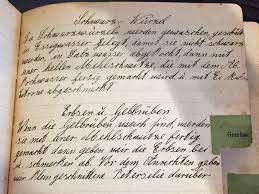 Schwarz-Würzel
Die Schwarzwurzeln werden gewaschen, geschabt
in Essigwasser gelegt, damit sie nicht schwarz
werden, in Salzwasser abgekocht, dann mit
einer hellen Mehlschmeize, die mit dem
Kochwasser fertig gemacht wird u. mit Ei
abgeschmeckt.
Erbsen u. Gelbrüben
Wenn die Gelbrüben weich sind, werden
sie mit einer Mehlschmeize fertig
gemacht dann geben wir die Erbsen bei
u. schmecken ab. Vor dem Anrichten geben
wir klein geschnittene Petersilie darüber